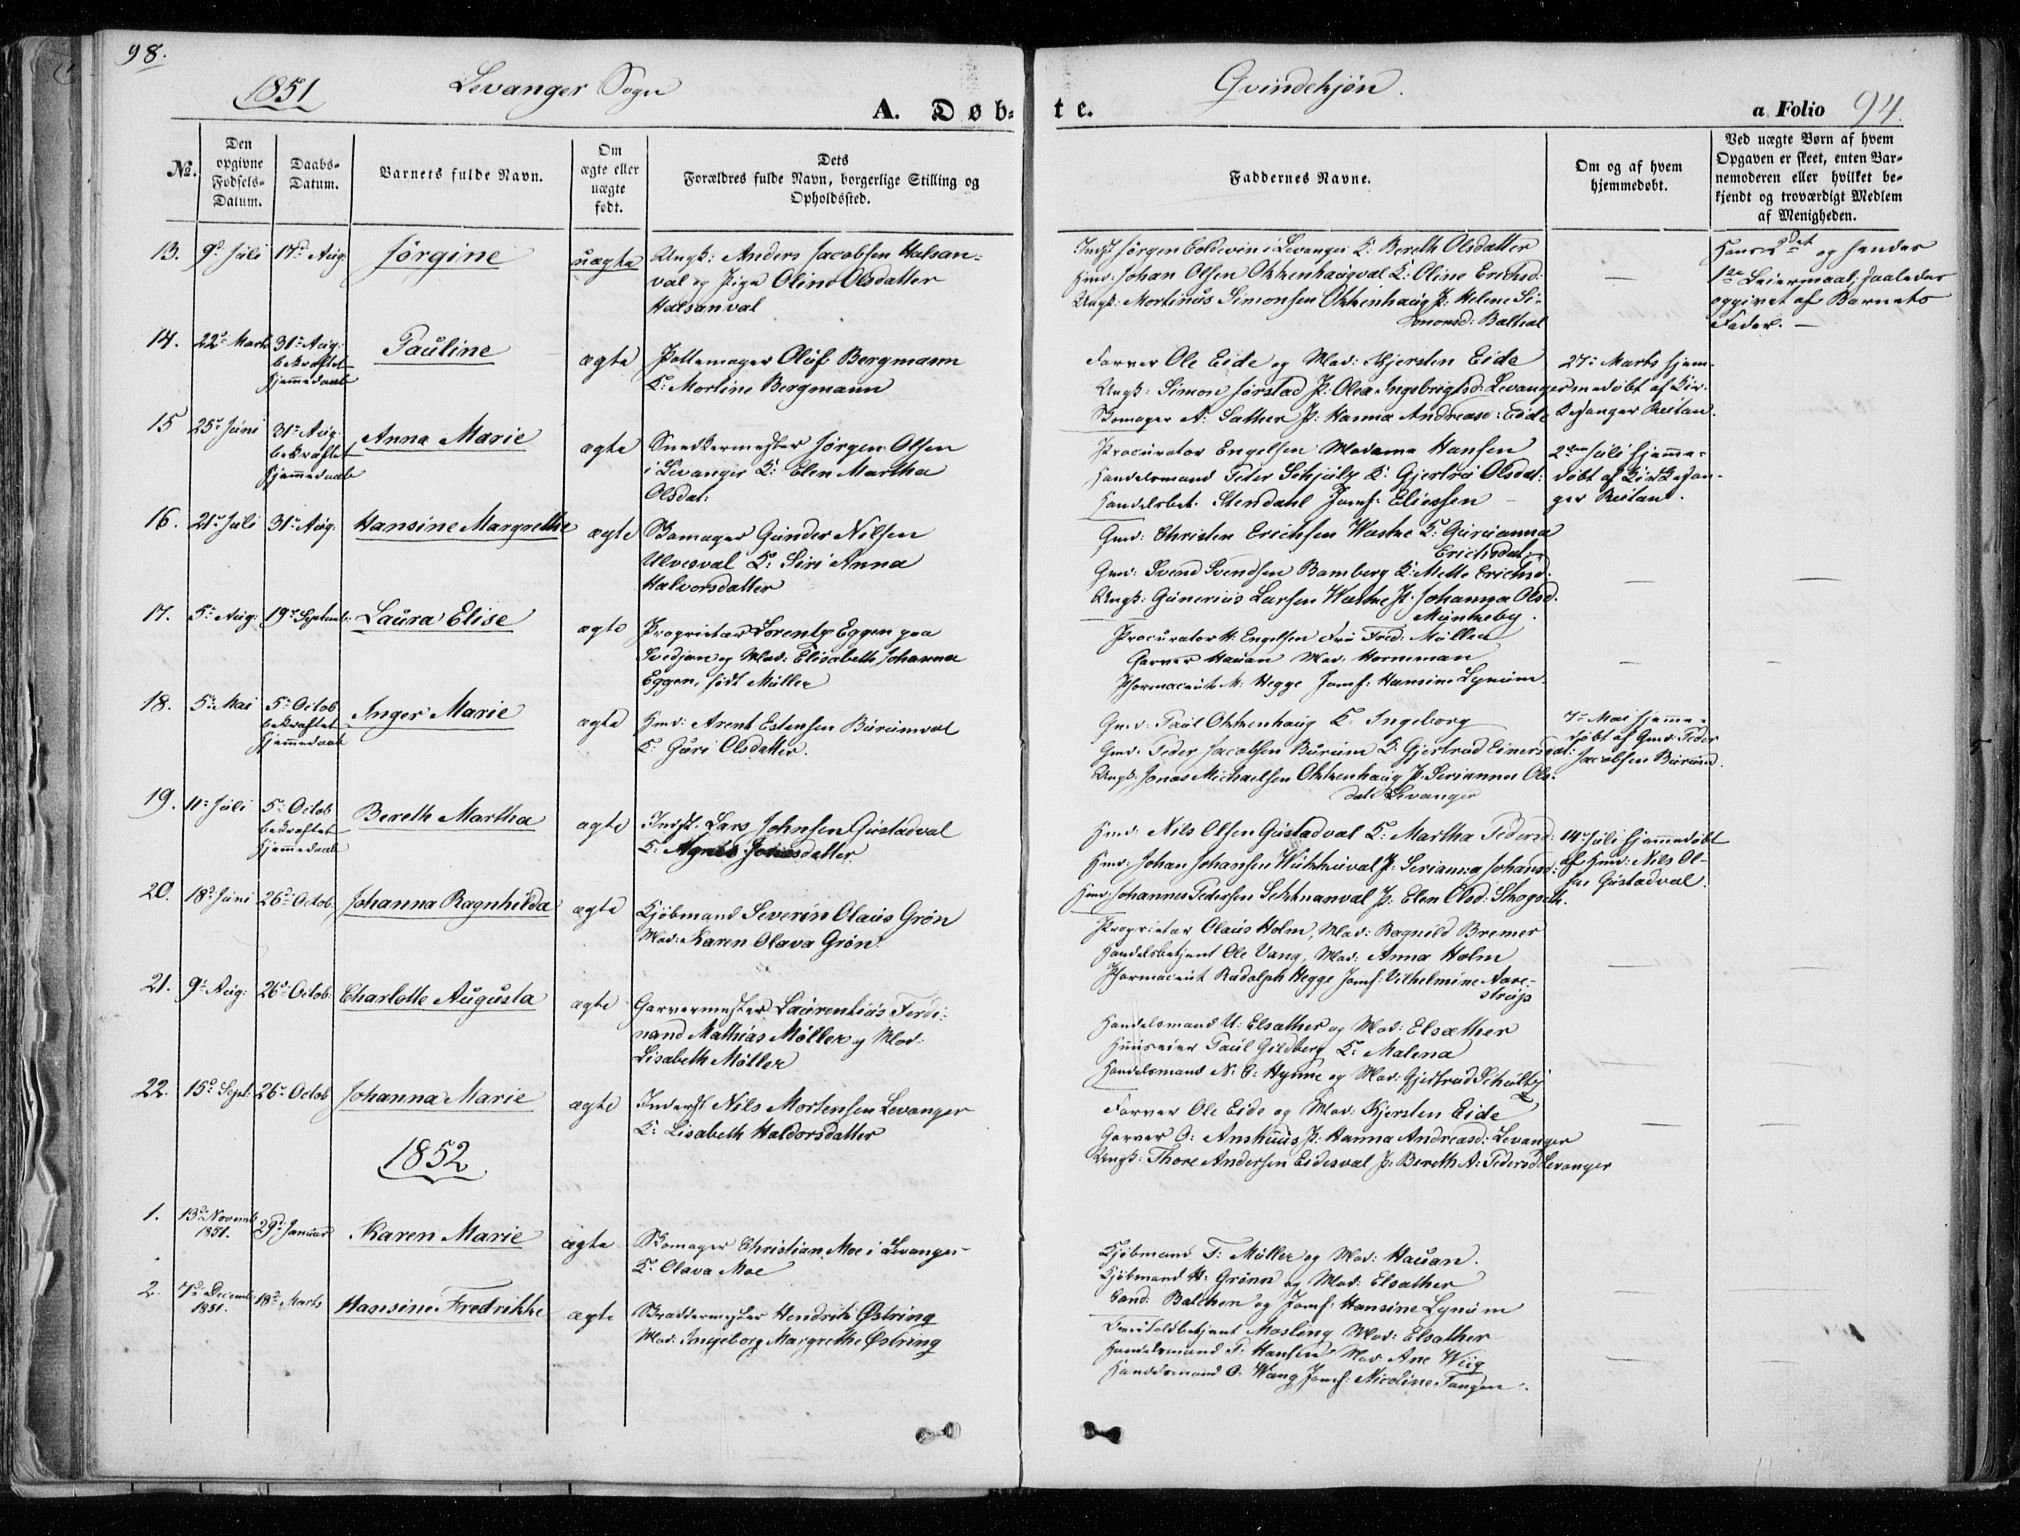 98.
1851
Levanger Sogn
Qvindekjøn.
A. Døb-
te.
a Folio 94.
№.
Den opgivne Fødsels-Datum.
Daabs-Datum.
Barnets fulde Navn.
Om ægte eller uægte født.
Dets Forældres fulde Navn, borgerlige Stilling og Opholdssted.
Faddernes Navne.
Om og af hvem hjemmedøbt.
Ved uægte Børn af hvem Opgaven er skeet, enten Barnemoderen eller hvilket bekjendt og troværdigt Medlem af Menigheden.
13. 9d Juli 17d Aug: Jørgine uægte Ungk: Anders Jacobsen Halsan-
val og Pige Oline Olsdatter
Halsanval
Indst Jørgen Coldevin i Levanger K: Bereth Olsdatter
Hmd: Johan Olsen Okkenhaugval K: Oline Erichsd:
Ungk: Mortinus Simonsen Okkenhaug P: Helene Si-
monsd: Balhal
—
Hans 2det og hendes
1ste Leiermaal; saaledes
opgivet af Barnets
Fader. —
14. 22d Marts 31d Aug: bekræftet Hjemmedaab Pauline ægte Pottemager Oluf Bergmann
K: Mortine Bergmann
Farver Ole Eide og Mad: Kjersten Eide
Ungk: Simon Jørstad P: Olea Ingebrigtsd: Levanger
Skomager A: Sather P: Hanna Andreasd: Eide
27d Marts hjem-
medøbt af Kir-
kesanger Reitan.
15 25d Juni 31d Aug: bekræftet Hjemmedaab Anna Marie ægte Snedkermester Jørgen Olsen
i Levanger K: Elen Martha
Olsdat:
Procurator Engelsen Madame Hansen
Handelsmand Peter Schjulz K: Gjertru Olsdat:
Handelsbet. Stendahl Jomf: Eliessen
2den Juli hjemme-
døbt af Kirkesan-
ger Reitan.
16. 21d Juli 31d Aug: Hansine Margrethe ægte Skomager Gunder Nilsen
Ulvesval K: Siri Anna
Halvorsdatter
Gmd: Christen Erichsen Wastue K: Gurianna
Erichsdat:
Gmd: Svend Svendsen Bamberg K: Mette Erichsd:
Ungk: Gunerius Larsen Wastue P: Johanna Olsd.
Munkeby.
—
—
17. 5d Aug: 19d Septemb: Laura Elise ægte Proprietær Lorentz Eggen paa
Svedjan og Mad: Elisabeth Johanna
Eggen, født Müller
Procurator H. Engelsen Fru Fred: Müller
Garver Hauan Mad: Horneman
Pharmaceut R: Hegge Jomf: Hansine Lynum.
—
—
18. 5d Mai 5d Octob bekræftet Hjemmedaab Inger Marie ægte Hmd: Arent Estensen Buruimval
K: Guri Olsdatter.
Gmd: Paul Okkenhaug K: Ingeborg
Gmd: Peder Jacobsen Buruim K: Gjertrud Einersdat:
Ungk: Jonas Michaelsen Okkenhaug P: Serianna Ols-
dat: Levanger
7d Mai hjemme-
døbt af Gmd: Peder
Jacobsen Buruim.
19. 11d Juli 5d Octob bekræftet Hjemmedaab Bereth Martha ægte Indst. Lars Johnsen Gustadval
K: Agnes Jonasdatter
Hmd: Nils Olsen Gustadval K: Martha Pedersd:
Hmd: Johan Johansen Wukkuval P: Serianna Johansd:
Hmd: Johannes Pedersen Sekknanval P: Elen Olsd: Skogseth.
14d Juli hjemmedøbt
af Hmd: Nils Ol-
sen Gustadval.
20. 18d Juni 26d Octob: Johanna Ragnhilda ægte Kjøbmand Severin Olaus Grøn
Mad: Karen Olava Grøn.
Proprietær Olaus Holm, Mad: Ragnild Bremer
Handelsbetjent Ole Vang, Mad: Anna Holm
Pharmaceut Radolph Hegge Jomf: Vilhelmine Aare-
strup
—
—
21. 9d Aug: 26d Octob: Charlotte Augusta ægte Garvermester Laurentius Ferdi-
nand Mathias Møller og Mad:
Lisabeth Møller
Handelsmand U: Elsather og Mad: Elsæther
Huuseier Paul Gildberg K: Malena
Handelsmand N. O: Hynne og Mad: Gjertrud Schultz
22. 15d Sept: 26d Octob Johanna Marie ægte Inderst Nils Mortensen Levanger
K: Lisabeth Haldorsdatter
Farver Ole Eide og Mad: Kjersten Eide
Garver O: Anshuus P: Hanna Andreasd: Levanger
Ungk: Thore Andersen Eidesval P: Bereth A: Pedersd: Levanger
—
—
1852
1. 13d Novemb 1851. 29d Januar Karen Marie ægte Skomager Christian Moe i Levanger
K: Olava Moe
Kjøbmand F: Müller og Mad: Hauan.
Kjøbmand H: Grønn og Mad: Elsather
Cand: Balchen og Jomf: Hansine Lynum
2. 7d Decemb: 1851. 18d Marts Hansine Fredrikke ægte Hendrik Østring
Mad: Ingeborg Margrethe Østring
Mosling Mad: Elsather
Handelsmand P: Hansen Mad: Ane Wiig
Handelsmand O. Wang Jomf: Nicoline Tangen.
—
—